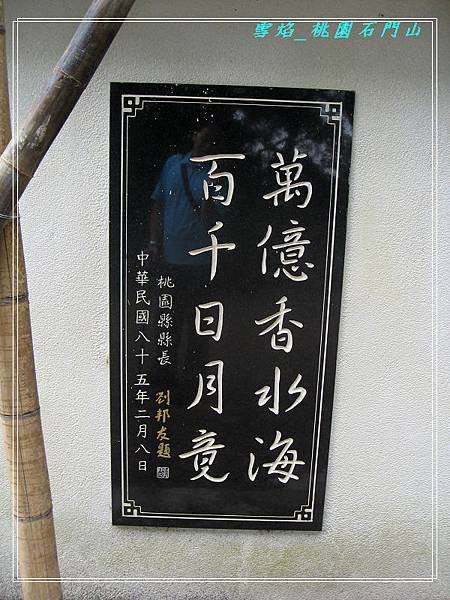 雪焰_桃園石門山
萬億香水海
百千日月竟
桃園縣縣長 劉邦友題
中華民國八十五年二月八日